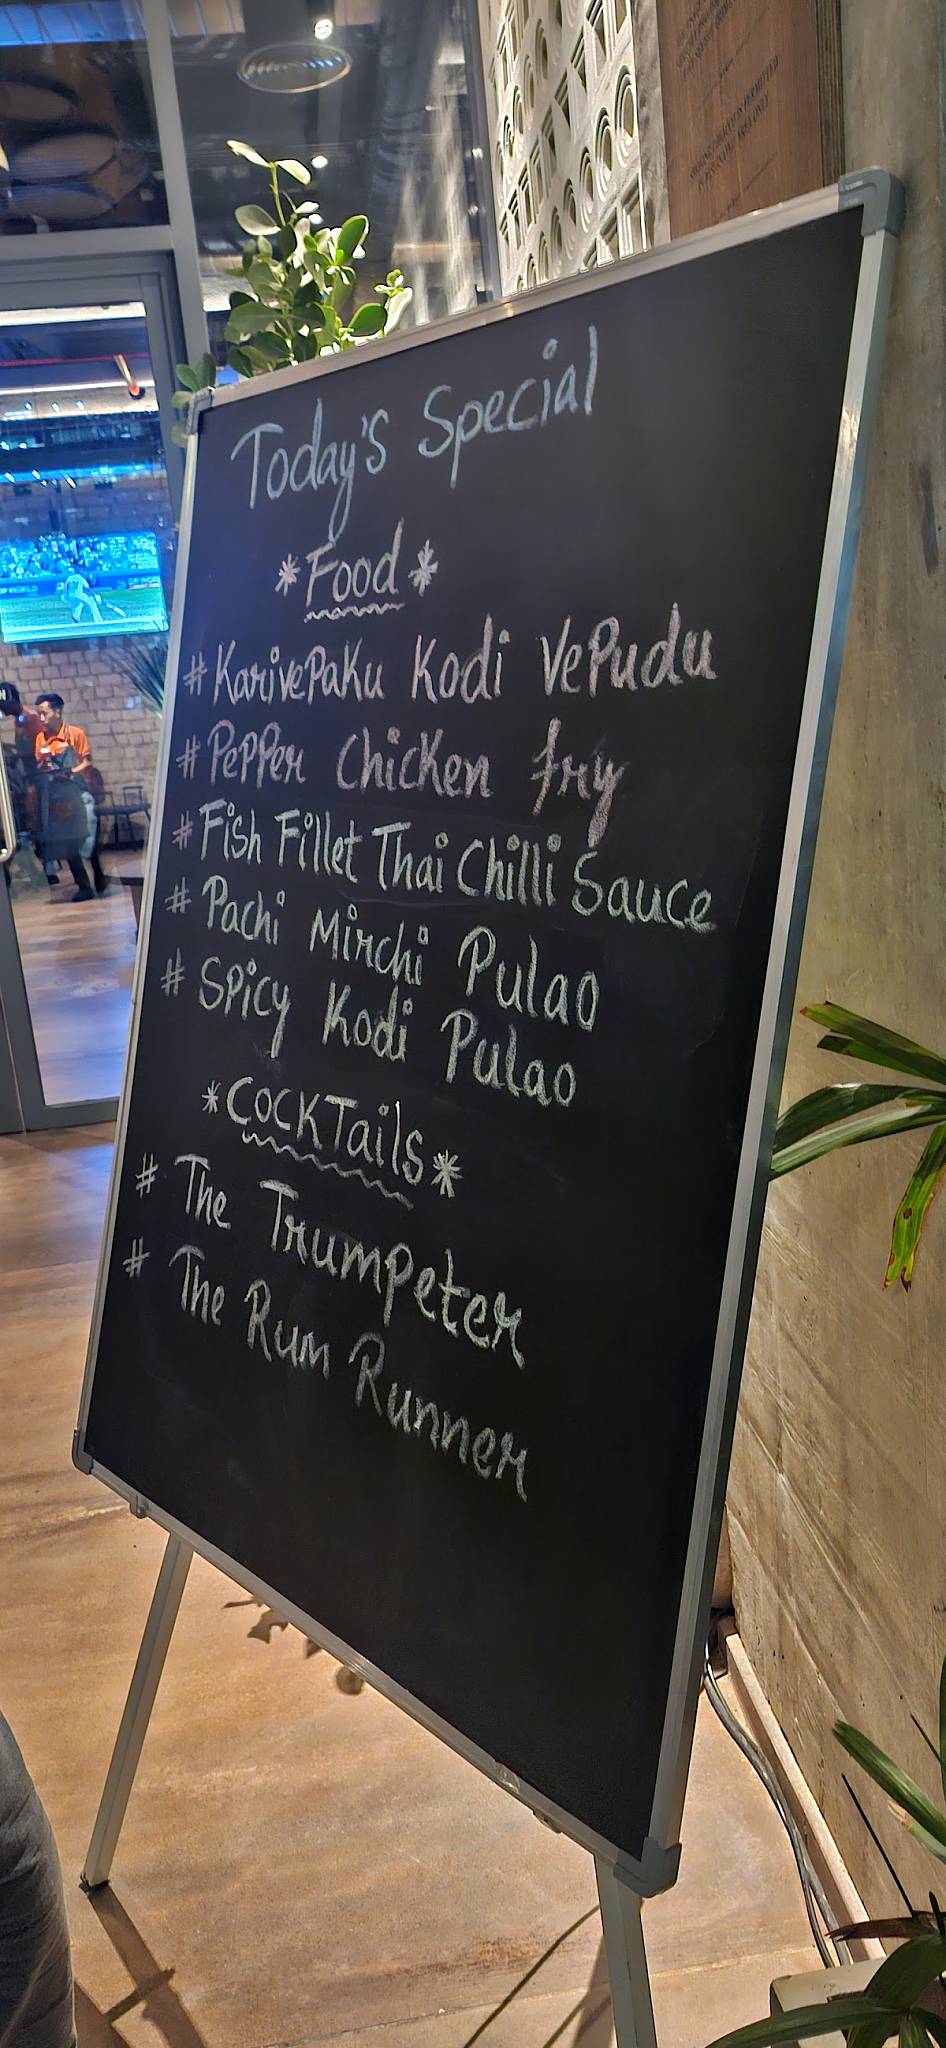 Today's Special
*Food*
#Karivepaku Kodi Vepudu
#Pepper Chicken fry
#Fish Fillet Thai Chilli Sauce
# Pachi Mirchi Pulao
# Spicy Kodi Pulao
*Cocktails*
# The Trumpeter
# The Rum Runner